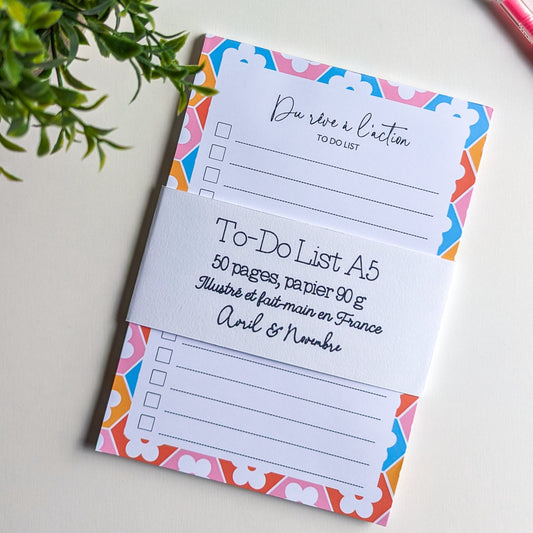 Du rêve à l'action
TO DO LIST
To-Do List A5
50 pages, papier 90 g
Illustré et fait-main en France
Avril & Novembre